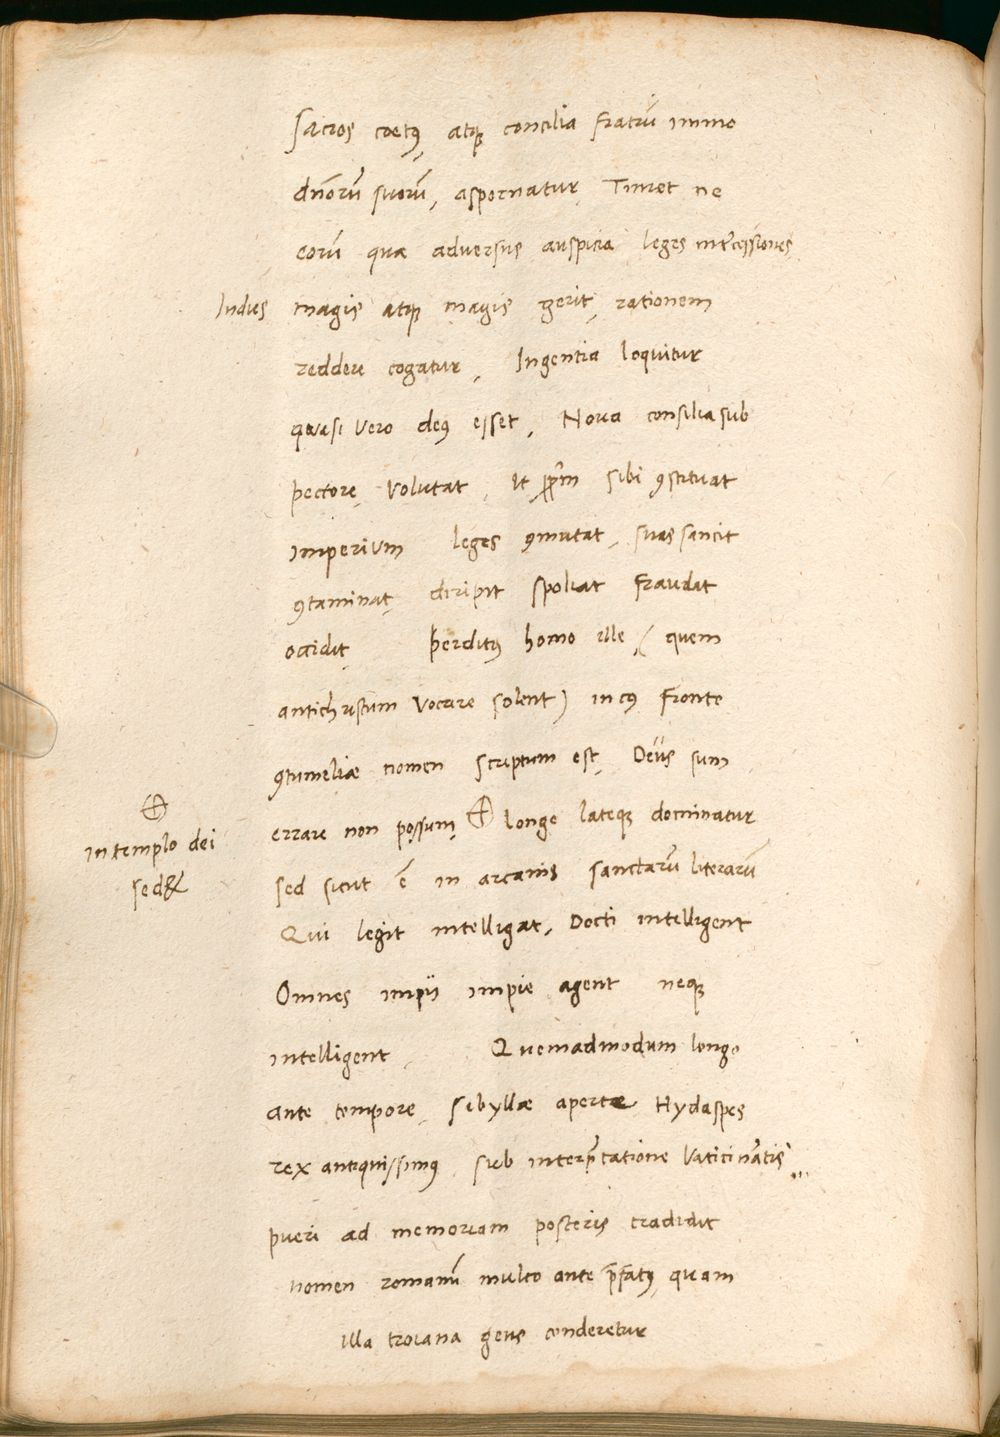 Sacros coetꝰ, atqꝫ concilia fratrū immo
dn̄orū suorū, aspernatur, Timet ne
eorū quæ adversus auspicia leges int̄cessiones
Indies magis atqꝫ magis gerit, rationem
reddere cogatur, Ingentia loquitur
quasi vero deꝰ esset, Nova consilia sub
pectore, volutat, ut sibi ꝯstituat
imperium leges ꝯmutat, suas sancit
ꝯtaminat, diripit spoliat fraudat
occidit perditꝰ homo ille, (quem
antichristum vocare solent) in cꝰ fronte
ꝯtumeliæ nomen scriptum est, Deus sum
errare non possum, ⊕ longe lateqꝫ dominatur
⊕
in templo dei
sed&
sed sicut ē in arcanis sanctarū literarū
Qui legit intelligat, Docti intelligent
Omnes impii impie agent neqꝫ
intelligent, Quemadmodum longe
ante tempore, sibyllæ apertæ Hydaspes
rex antiquissimꝰ, sub interp̄tatione vaticinātis
pueri ad memoriam posteris tradidit
nomen romanū multo ante p̄fatꝰ, quam
illa troiana gens conderetur